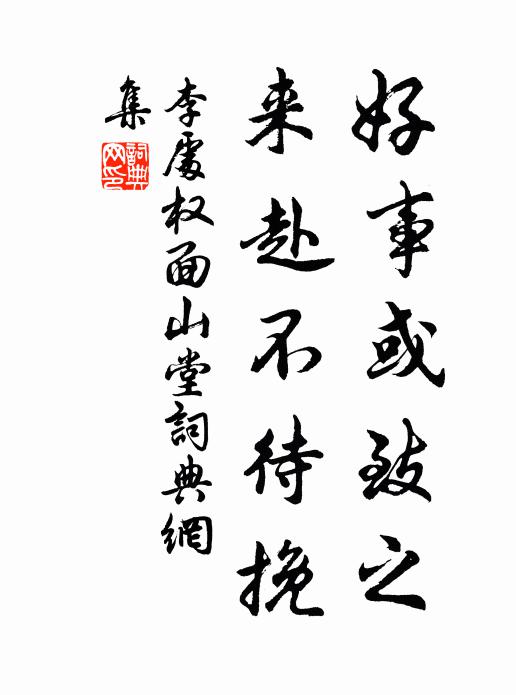 好事或致之
来赴不待挽
李處权面山堂詞典網
集
詞典網印